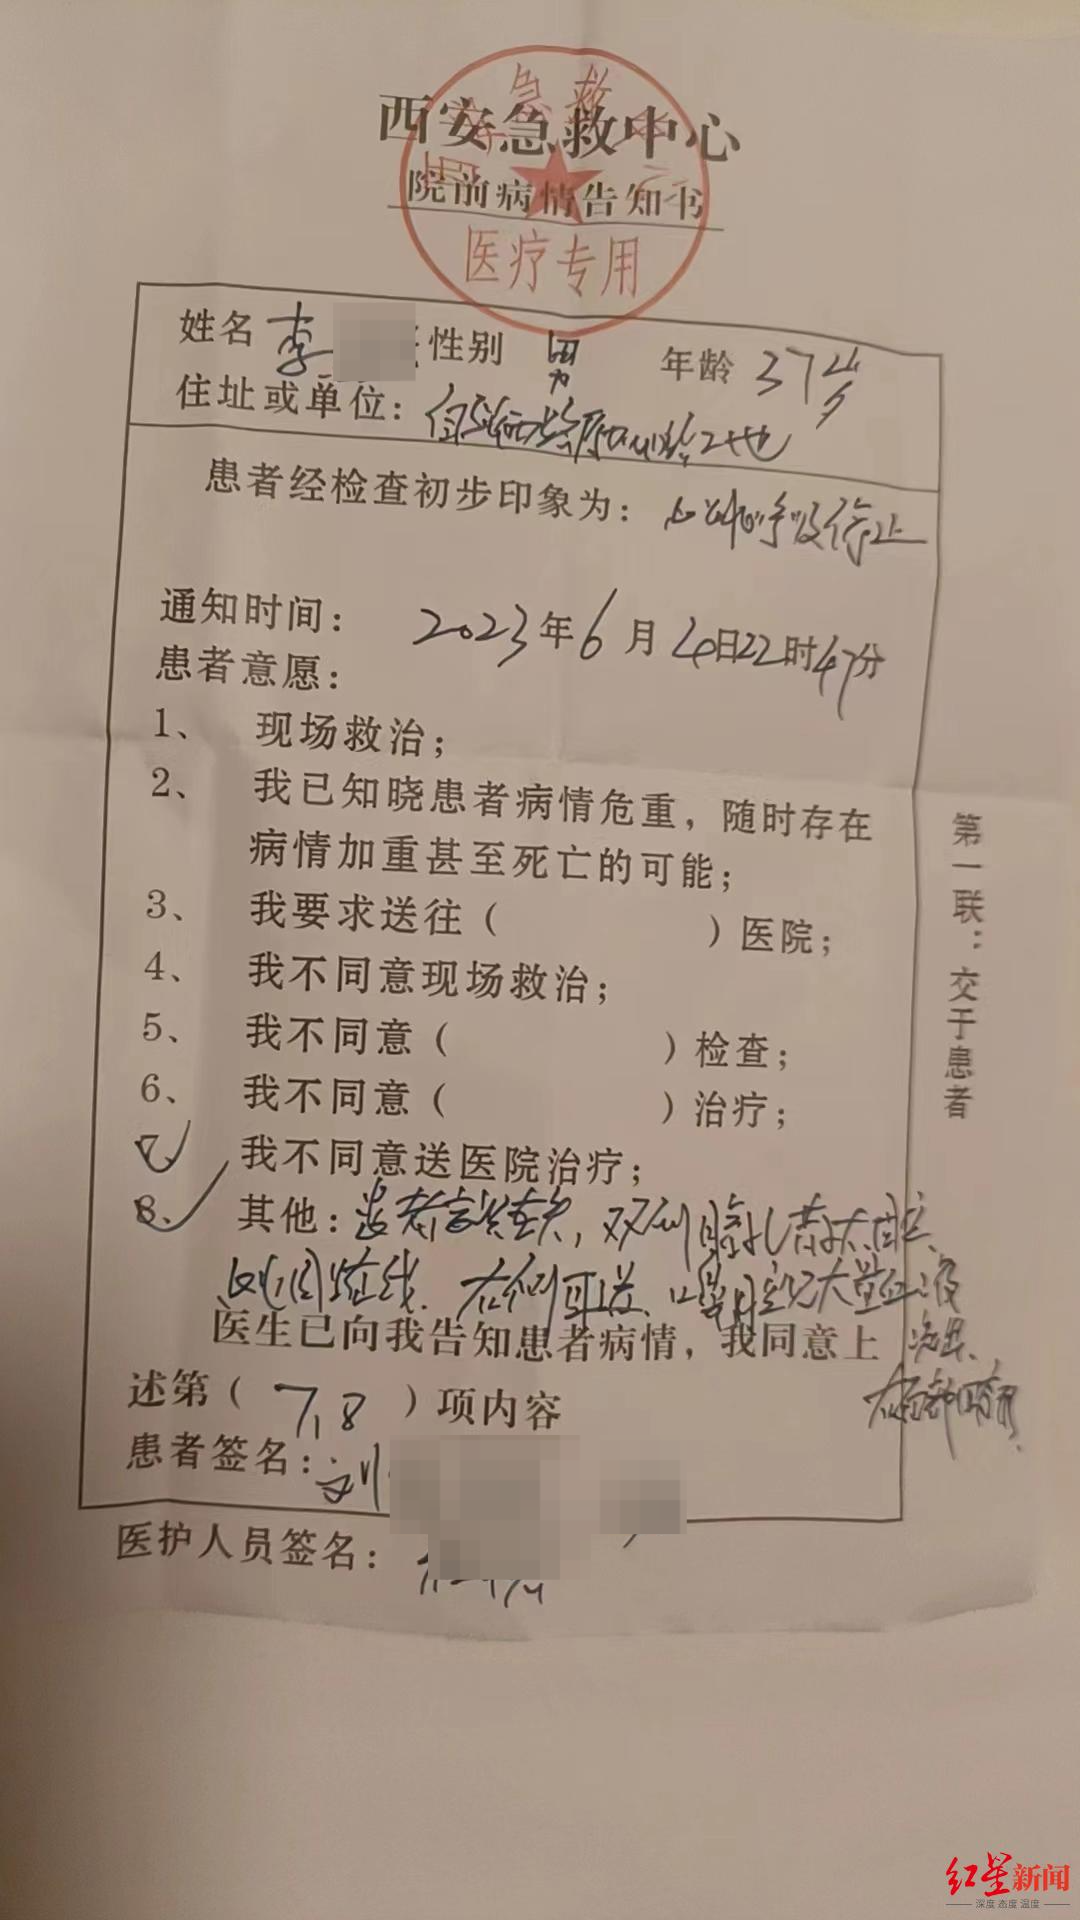 西安急救中心
院前病情告知书
急救
医疗专用
姓名 李 性别 男 年龄 37岁
住址或单位: 工地
患者经检查初步印象为: 心跳呼吸停止
通知时间: 2023年6月4日22时47分
患者意愿:
1、 现场救治;
2、 我已知晓患者病情危重,随时存在
病情加重甚至死亡的可能;
3、 我要求送往( )医院;
4、 我不同意现场救治;
5、 我不同意( )检查;
6、 我不同意( )治疗;
7、 我不同意送医院治疗;
8、 其他: 患者意识丧失,双侧瞳孔散大固定、
右侧耳道、口鼻腔见大量血液
医生已向我告知患者病情,我同意上
流出、
述第( 7,8 )项内容
患者签名: 刘
医护人员签名:
第一联:交于患者
红星新闻
深度 态度 温度